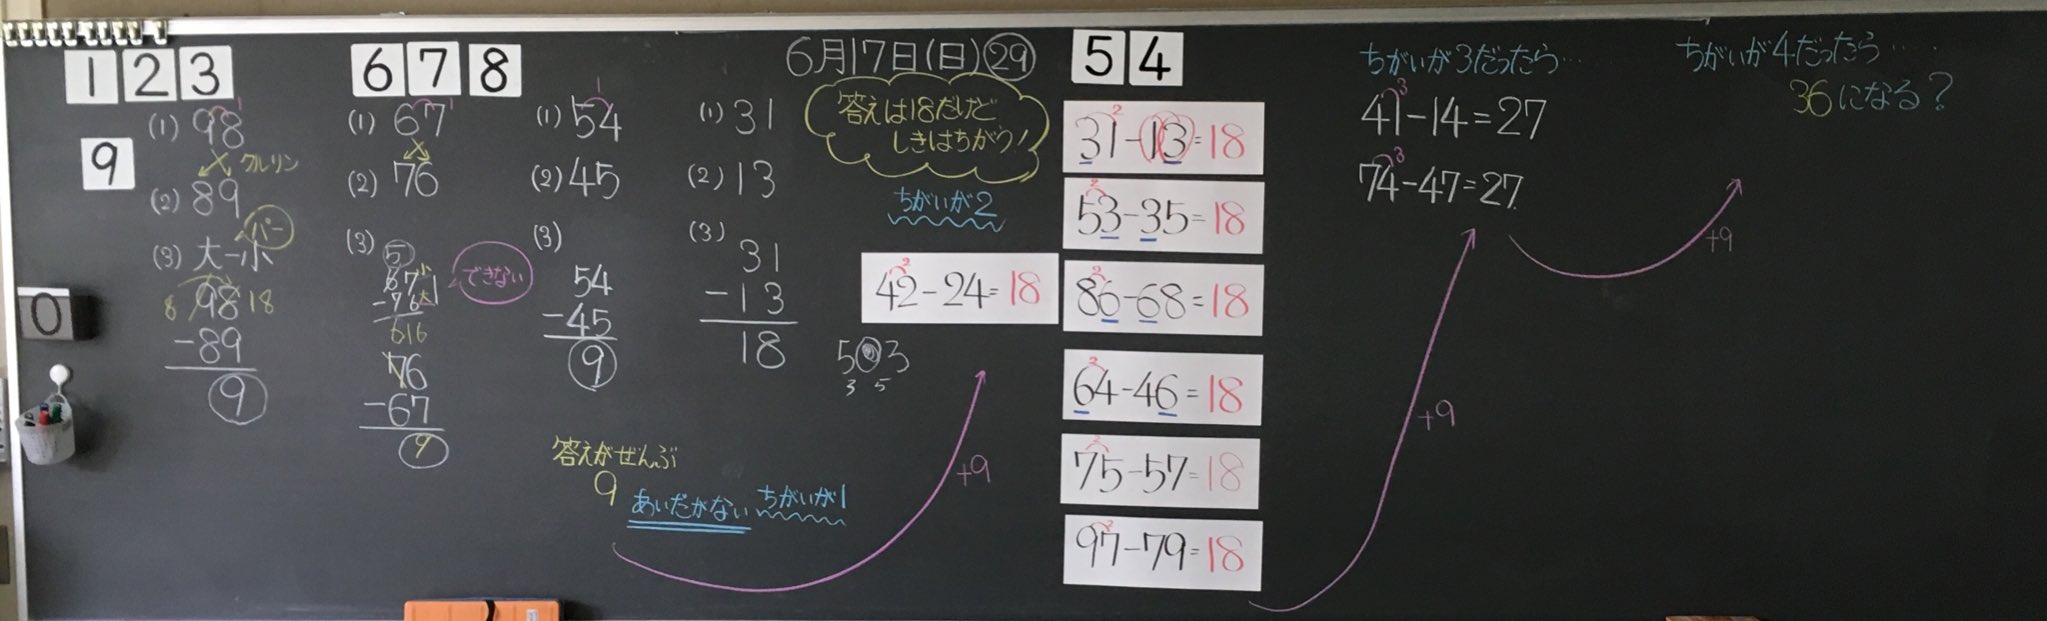 1 2 3
9
0
(1) 98
クルリン
(2) 89
バー
(3) 大-小
8 98 18
-89
9
6 7 8
(1) 67
(2) 76
(3) 5
67 小
-76 大
616
できない
76
-67
9
(1) 54
(2) 45
(3)
54
-45
9
答えがぜんぶ
9
あいだがない ちがいが1
+9
(1) 31
(2) 13
(3)
31
-13
18
6月17日(日) 29
答えは18だけど、
しきはちがう!
ちがいが2
42-24=18
5 3
3 5
5 4
31-13=18
53-35=18
86-68=18
64-46=18
75-57=18
97-79=18
+9
ちがいが3だったら…
41-14=27
74-47=27
+9
ちがいが4だったら……
36になる?